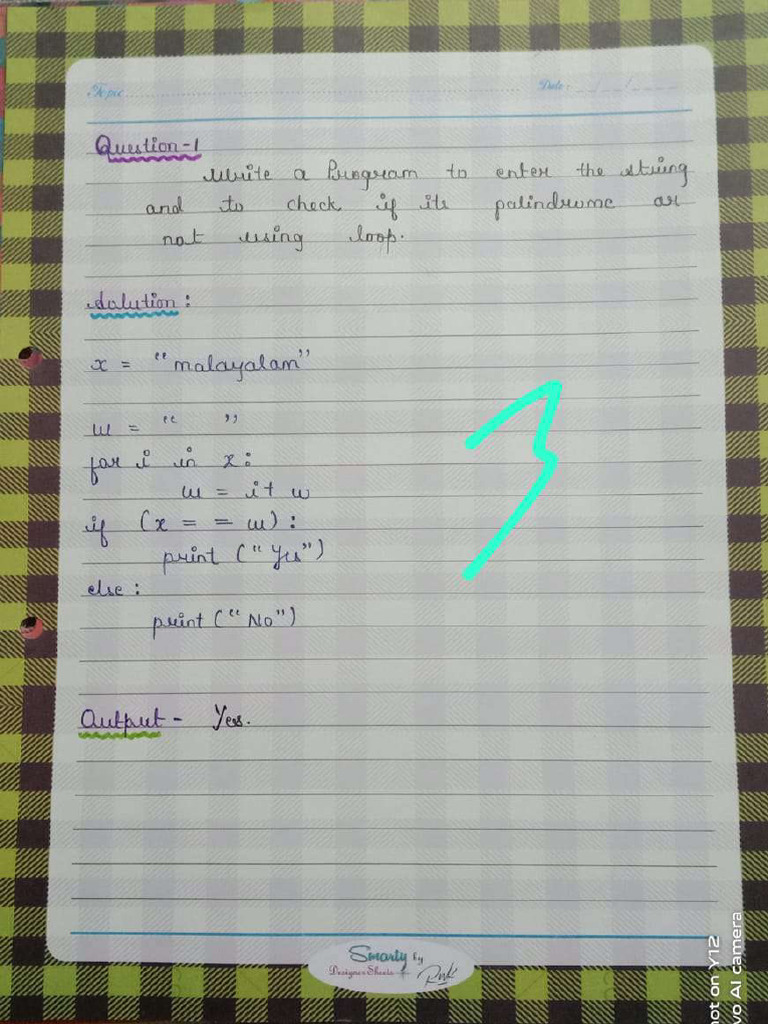 Topic
Date:
Question-1
Write a Program to enter the string
and to check if its palindrome or
not using loop.
Solution:
x = "malayalam"
w = " "
for i in x:
w = i+ w
if (x = = w):
print ("Yes")
else:
print ("No")
3
Output - Yes.
Smarty by
Designer Sheets
ot on Y12
vo AI camera